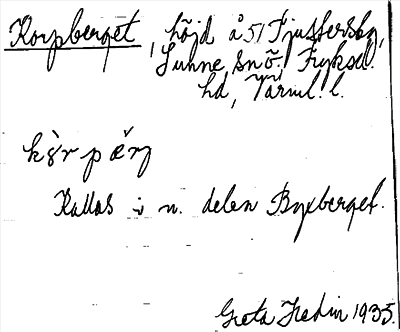 Korpberget, höjd å 51 Tjusterskog,
Sunne snö. Fryksd.
hd, Värml. l.
Kallas i n. delen Byxberget.
Greta Hedin 1935.